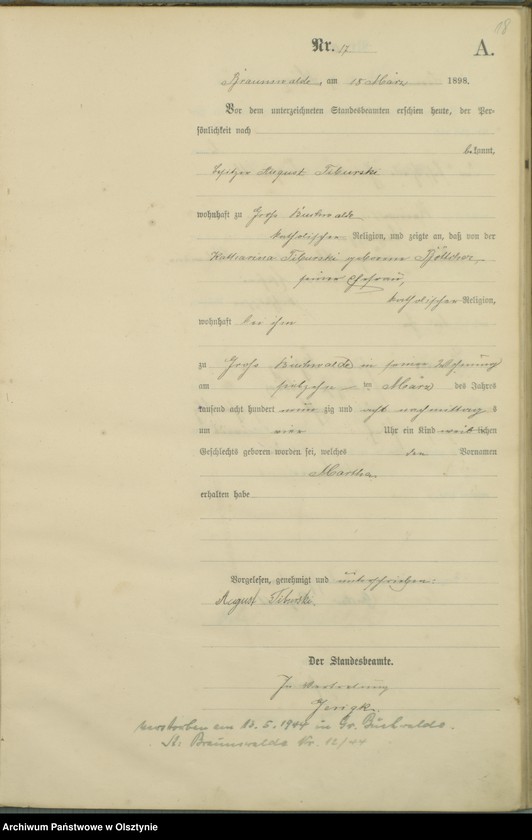 18
Nr. 17
A.
Braunswalde, am 18 März 1898.
Vor dem unterzeichneten Standesbeamten erschien heute, der Per-
sönlichkeit nach
bekannt,
Besitzer August Tiburski
wohnhaft zu Groß Buchwalde
katholischer Religion, und zeigte an, daß von der
Katharina Tiburski geborene
seiner Ehefrau,
katholischer Religion,
wohnhaft bei ihm
zu Groß Buchwalde in seiner Wohnung
am ten März des Jahres
tausend acht hundert neun zig und acht nachmittags
um vier Uhr ein Kind weiblichen
Geschlechts geboren worden sei, welches den Vornamen
Martha
erhalten habe
Vorgelesen, genehmigt und unterschrieben:
August Tiburski.
Der Standesbeamte.
In Vertretung
verstorben am 13.5.1944 in Gr. Buchwalde.
St. Braunswalde Nr. 12/44
Archiwum Państwowe w Olsztynie